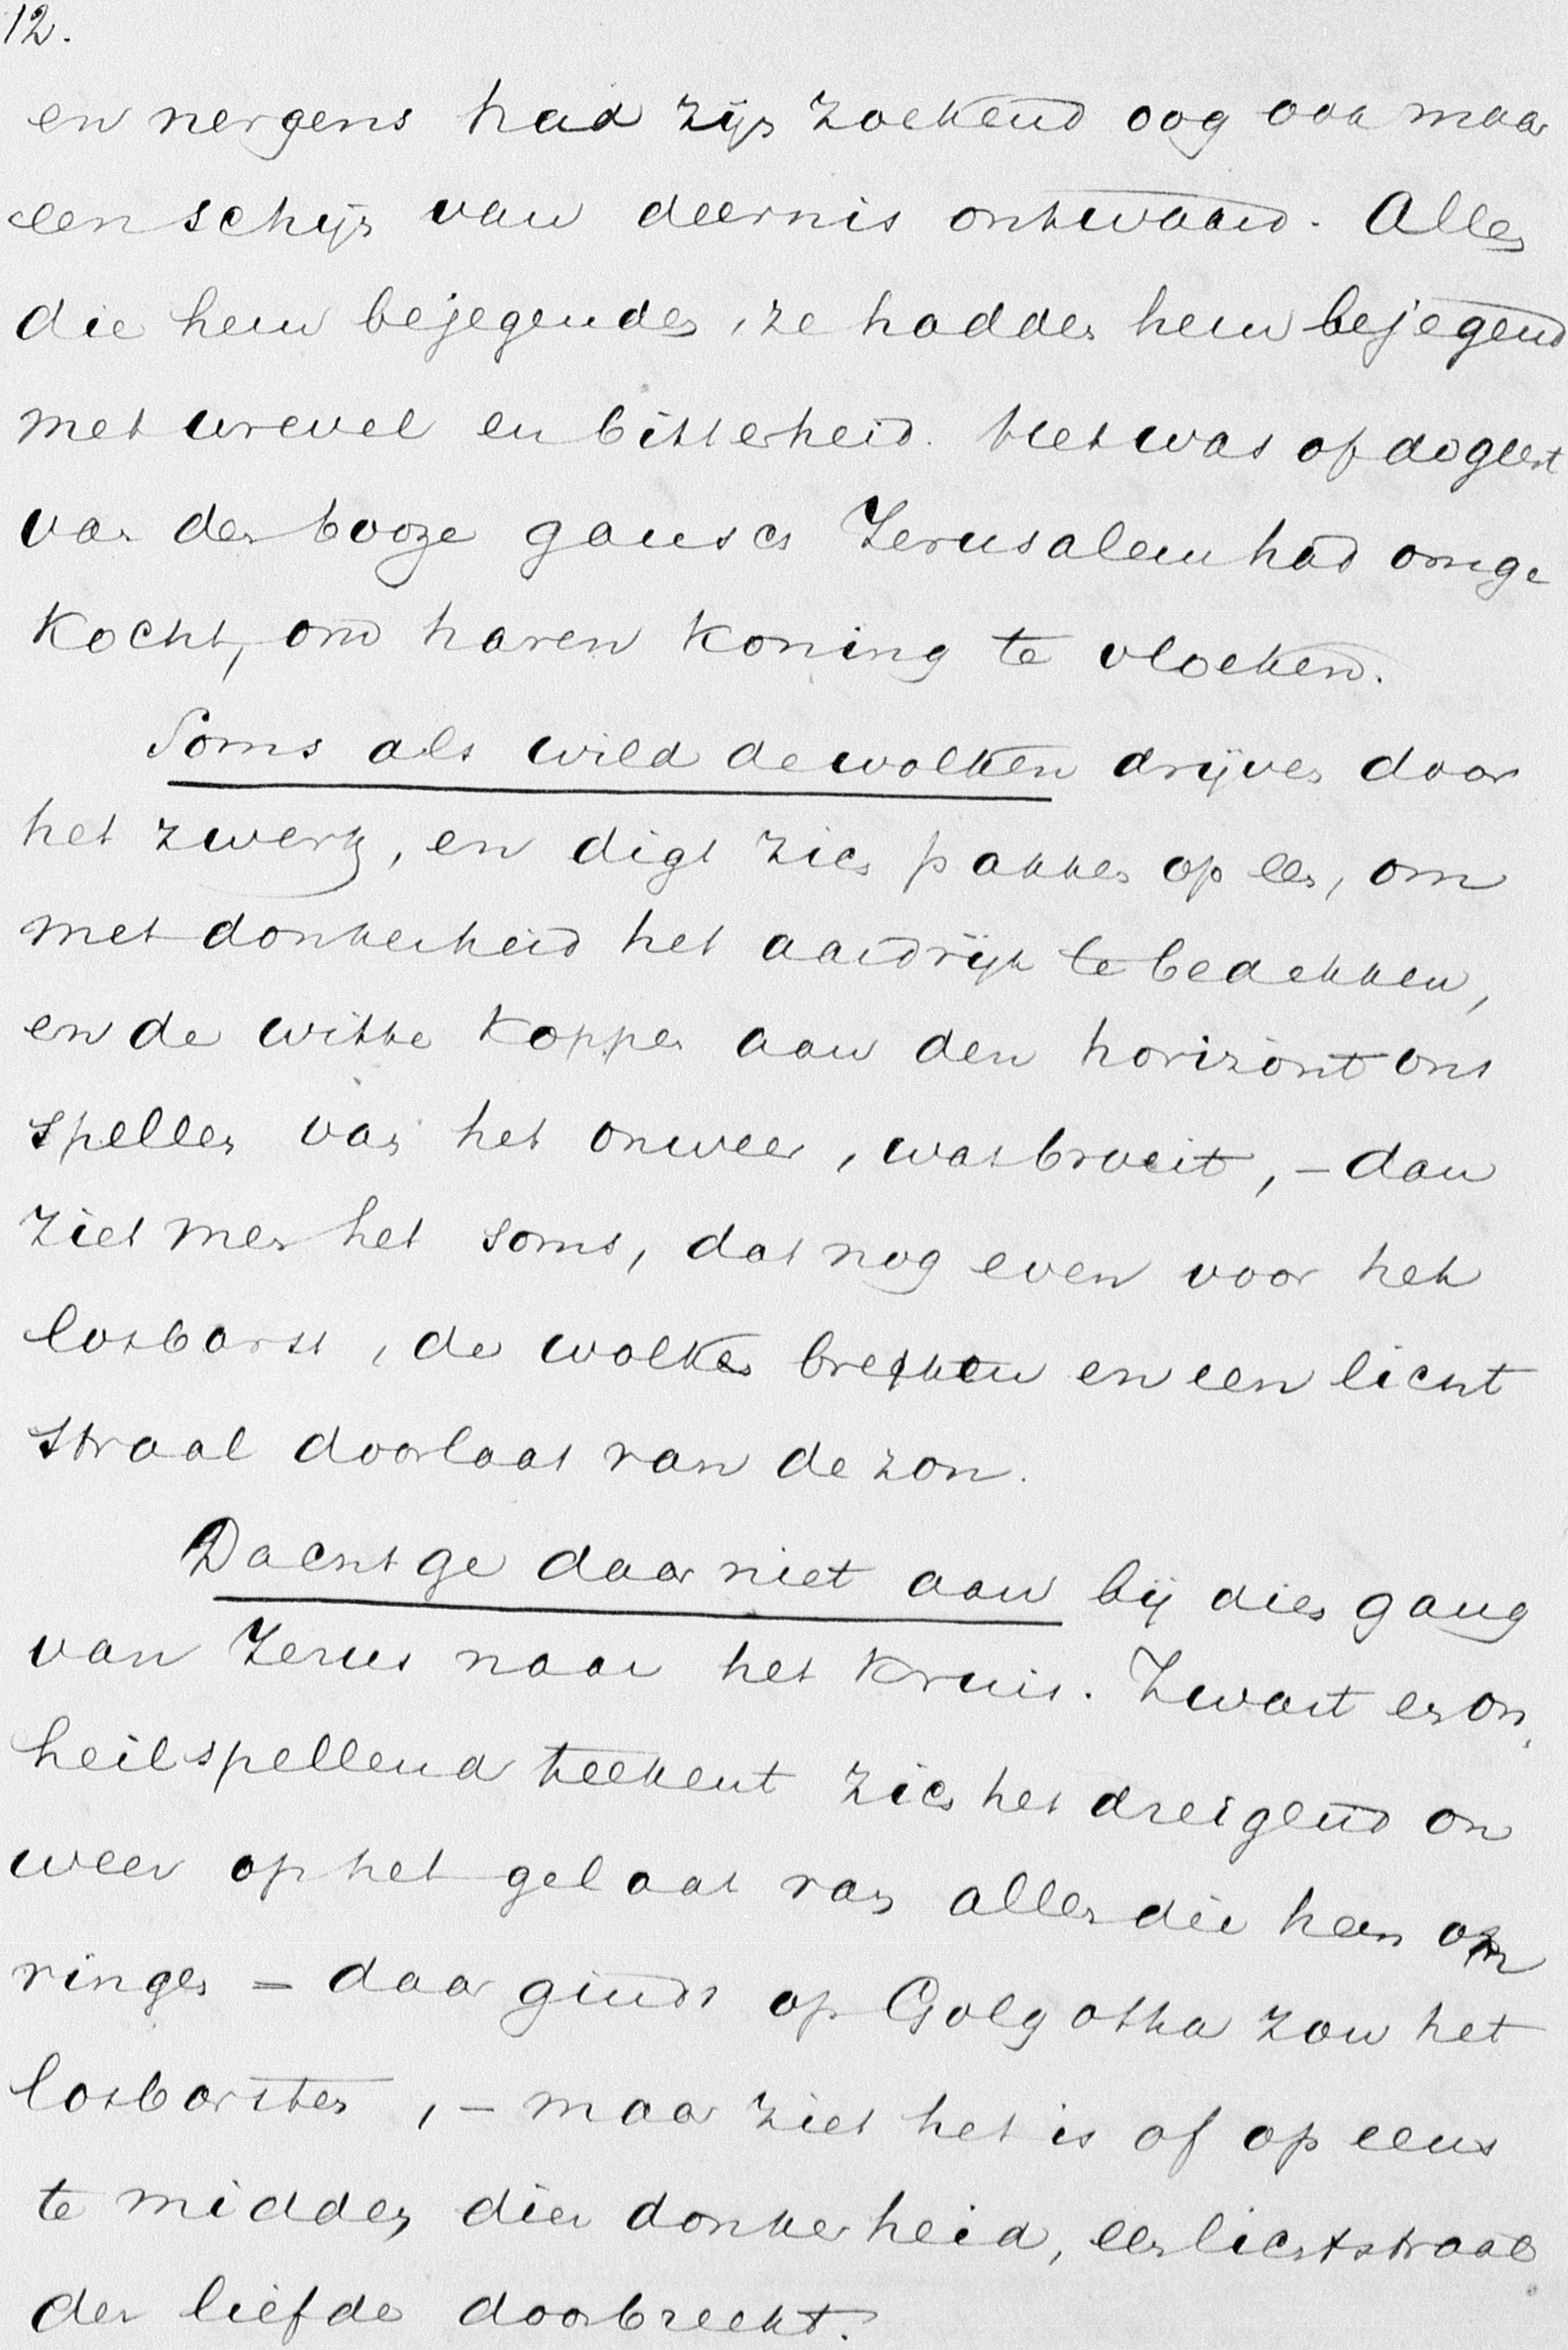 12.
en nergens had zijn zoekend oog ook maar
een schijn van deernis ontwaard. Allen
die hem bejegenden, ze hadden hem bejegend
met wrevel en bitterheid. Het was of de geest
van den booze gansch Jerusalem had omge
kocht, om haren koning te vloeken.
Soms als wild de wolken drijven door
het zwerk, en digt zich pakken op een, om
met donkerheid het aardrijk te bedekken,
en de witte koppen aan den horizont ons
spellen van het onweer, wat broeit, - dan
ziet men het soms, dat nog even voor het
losborst, de wolken breken en een licht
straal doorlaat van de zon.
Dacht ge daar niet aan bij dien gang
van Jezus naar het kruis. Zwart en on
heilspellend teekent zich het dreigend on
weer op het gelaat van allen die hem om
ringen - daar ginds op Golgotha zou het
losborsten, - maar ziet het is of op eens
te midden dier donkerheid, een lichtstraal
der liefde doorbreekt.